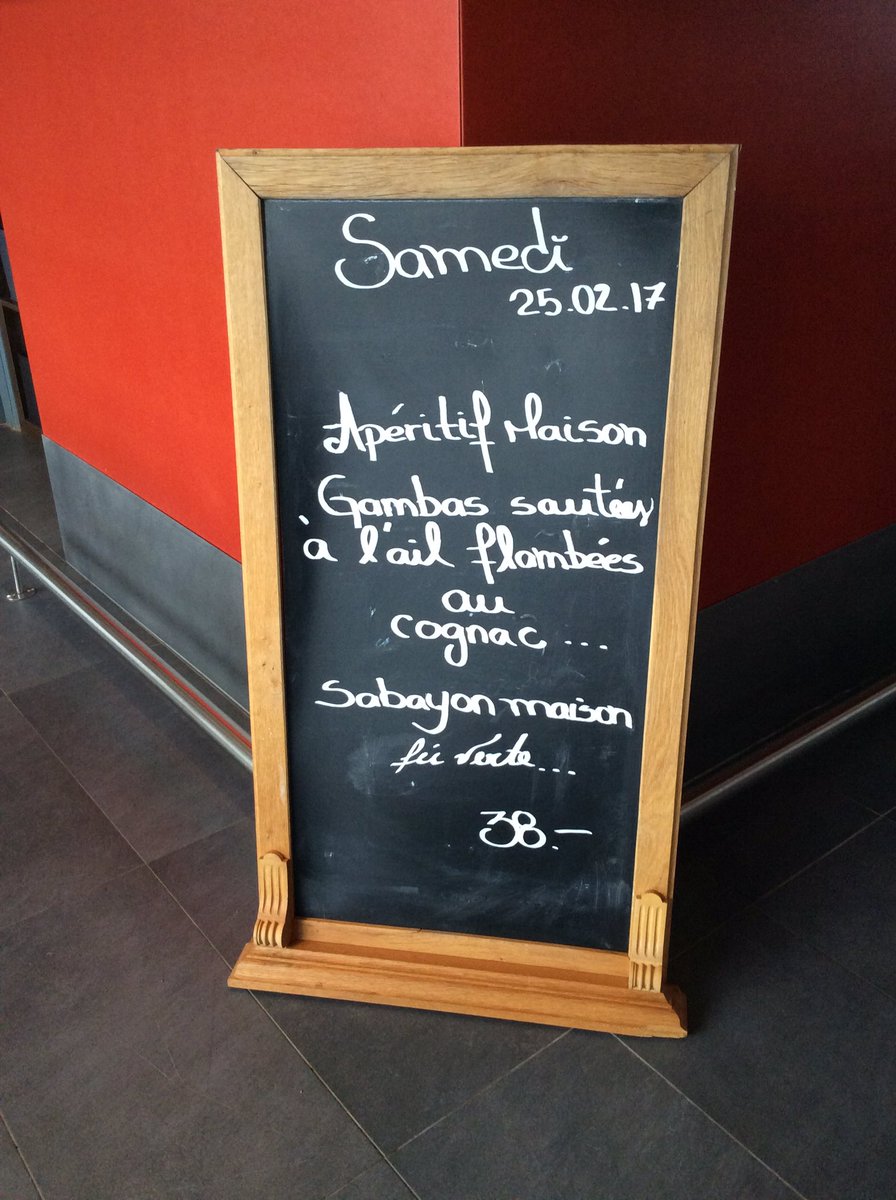 Samedi
25.02.17
Apéritif Maison
Gambas sautées
à l'ail flambées
au
cognac...
Sabayon maison
fée verte...
38.-